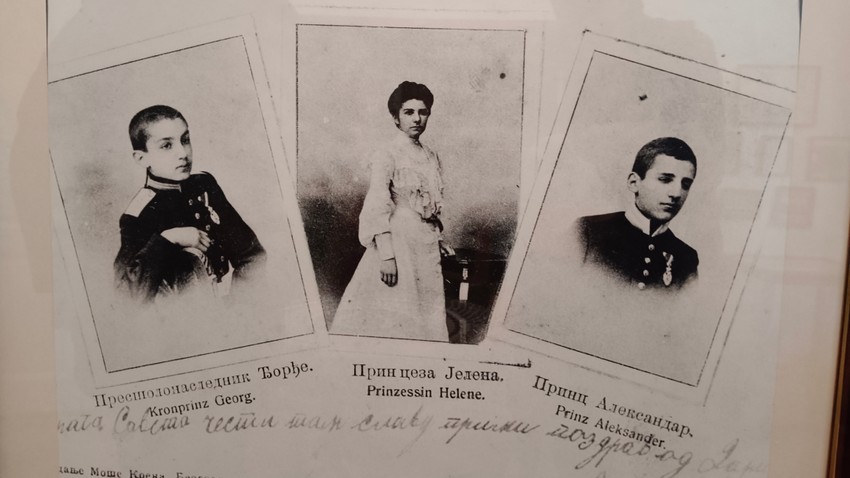 Престолонаследник Ђорђе.
Kronprinz Georg.
Принцеза Јелена.
Prinzessin Helene.
Принц Александар.
Prinz Aleksander.
чести славу прими поздрав од
дање Моше Коена,